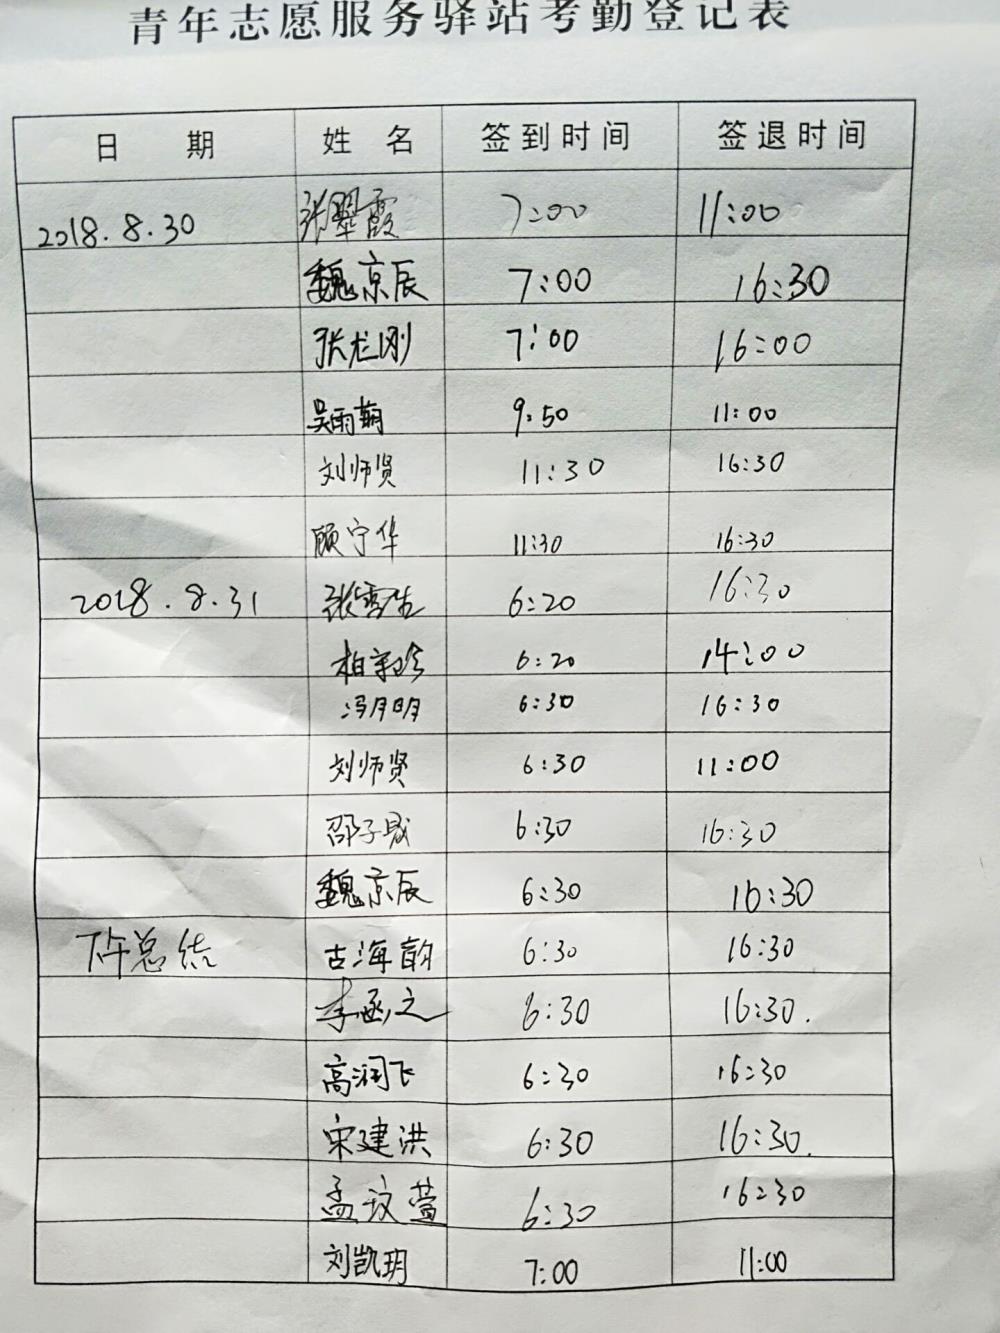 青年志愿服务驿站考勤登记表
日 期 姓 名 签到时间 签退时间
2018.8.30 张翠霞 7:00 11:00
魏京辰 7:00 16:30
张龙刚 7:00 16:00
吴雨萌 9:50 11:00
刘师贤 11:30 16:30
顾宁华 11:30 16:30
2018.8.31 张雪 6:20 16:30
柏 6:20 14:00
冯月明 6:30 16:30
刘师贤 6:30 11:00
邵子晟 6:30 16:30
魏京辰 6:30 16:30
下午总结 古海韵 6:30 16:30
李函之 6:30 16:30.
高润飞 6:30 16:30
宋建洪 6:30 16:30.
孟玟萱 6:30 16:30
刘凯玥 7:00 11:00